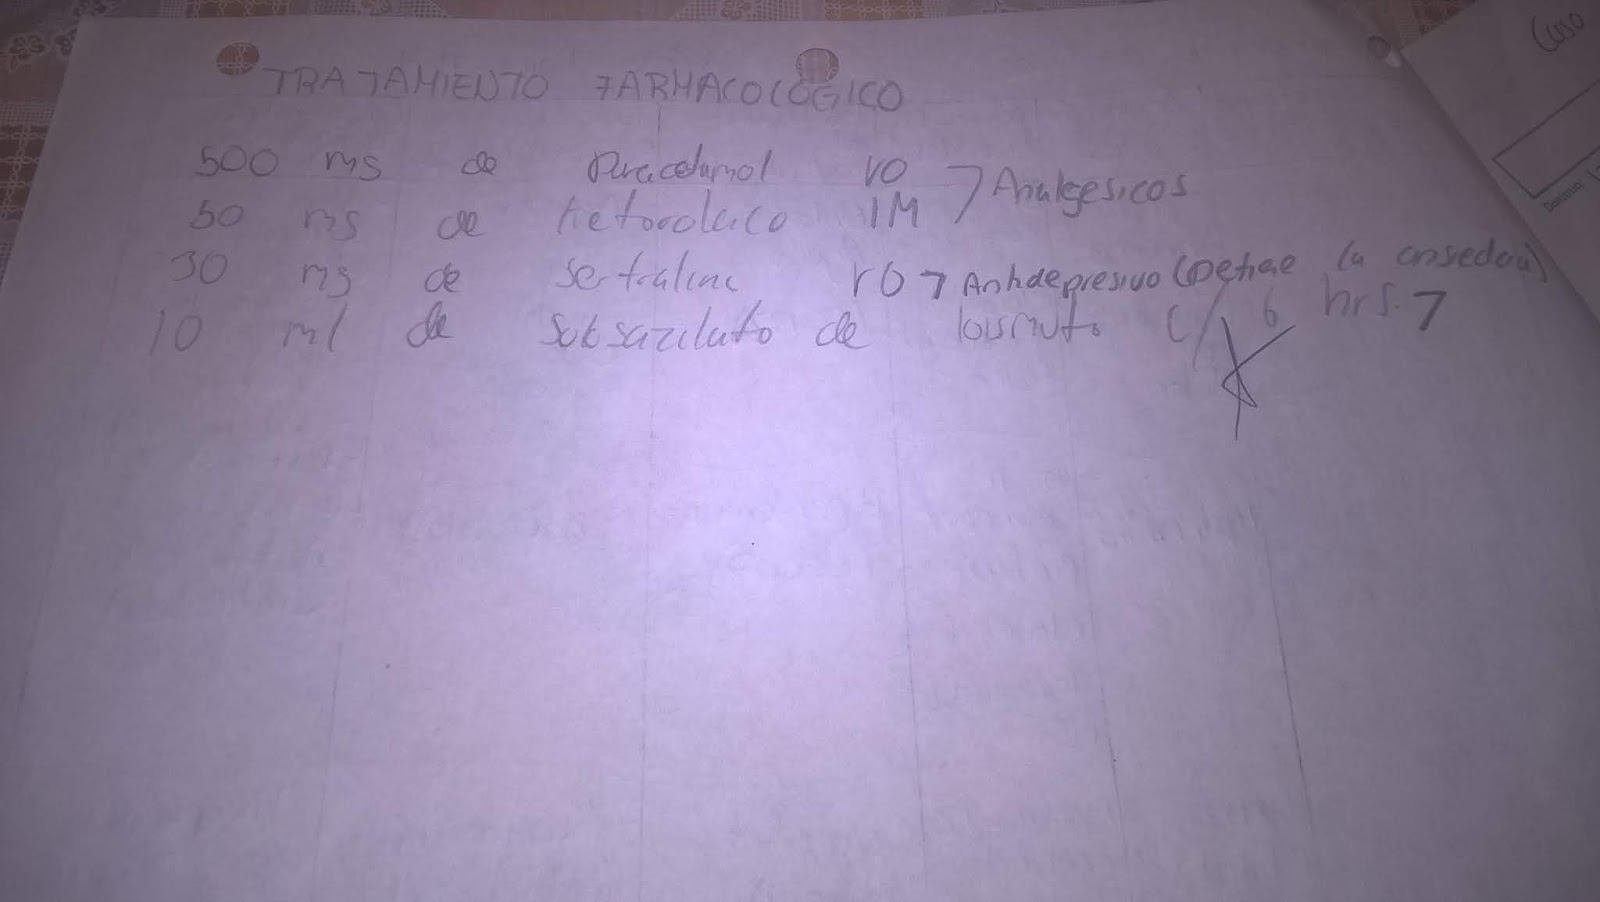 TRATAMIENTO FARMACOLÓGICO
500 mg de Paracetamol VO
50 mg de Ketorolaco IM
Analgesicos
30 mg de sertralina VO Antidepresivo (Detiene la ansiedad)
10 ml de subsazilato de bismuto C/ 6 hrs.
Caso
Dominio: